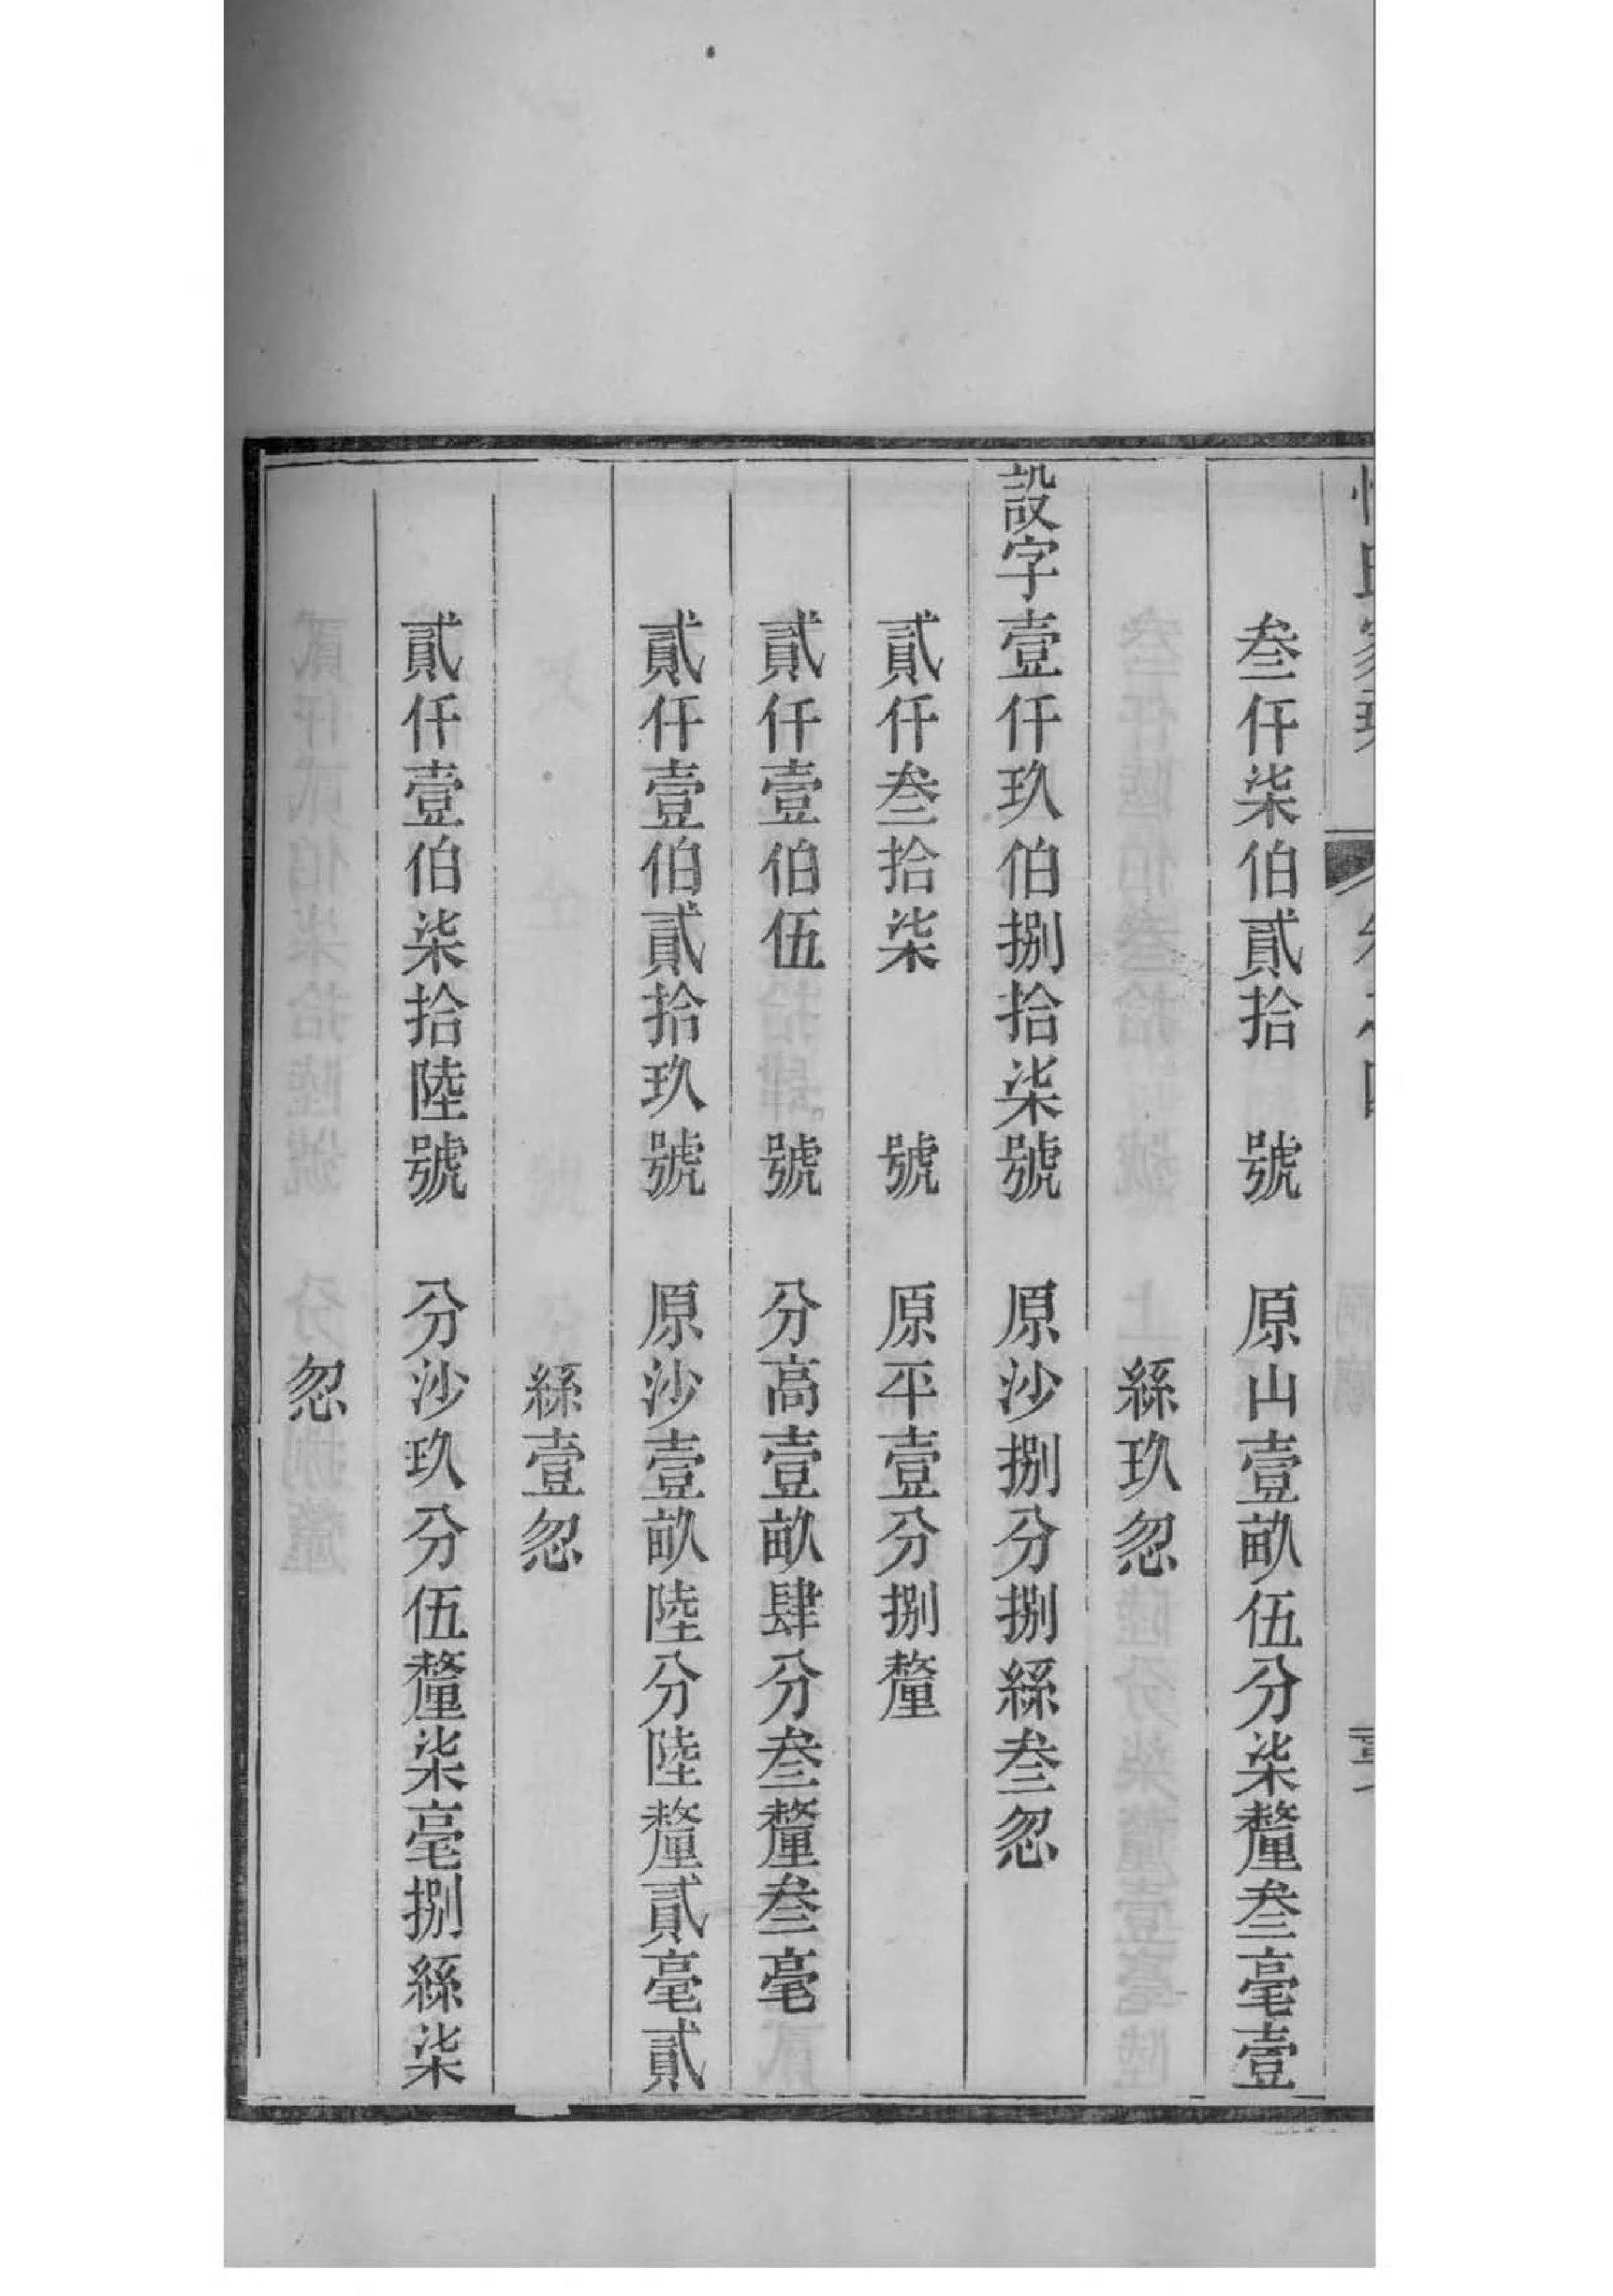 叁仟柒伯貳拾　號　原山壹畝伍分柒釐叁毫壹
絲玖忽
設字壹仟玖伯捌拾柒號　原沙捌分捌絲叁忽
貳仟叁拾柒　號　原平壹分捌釐
貳仟壹伯伍　號　分高壹畝肆分叁釐叁毫
貳仟壹伯貳拾玖號　原沙壹畝陸分陸釐貳毫貳
絲壹忽
貳仟壹伯柒拾陸號　分沙玖分伍釐柒毫捌絲柒
忽